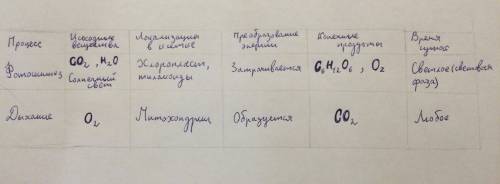 Процесс
Исходные вещества
Локализация в клетке
Преобразование энергии
Конечные продукты
Время суток
Фотосинтез
CO2, H2O
Солнечный свет
Хлоропласт,
тилакоиды
Затрачивается
C6H12O6, O2
Светлое (световая фаза)
Дыхание
O2
Митохондрии
Образуется
CO2
Любое